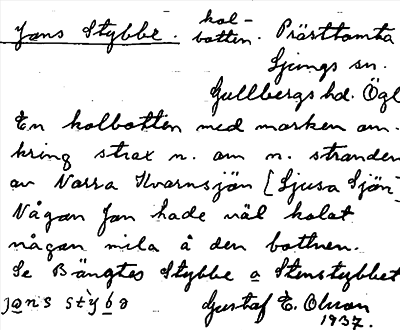 Jans Stybbe. kol-botten. Prästtomta
Ljungs sn.
Gullbergs hd. Ögl
En kolbotten med marken om-
kring strax n. om n. stranden
av Norra Kvarnsjön [Ljusa Sjön]
Någon Jan hade väl kolat
någon mila å den bottnen.
Se Bängtes Stybbe o Stenstybbet
jans stybə Gustaf E. Olsson
1937.